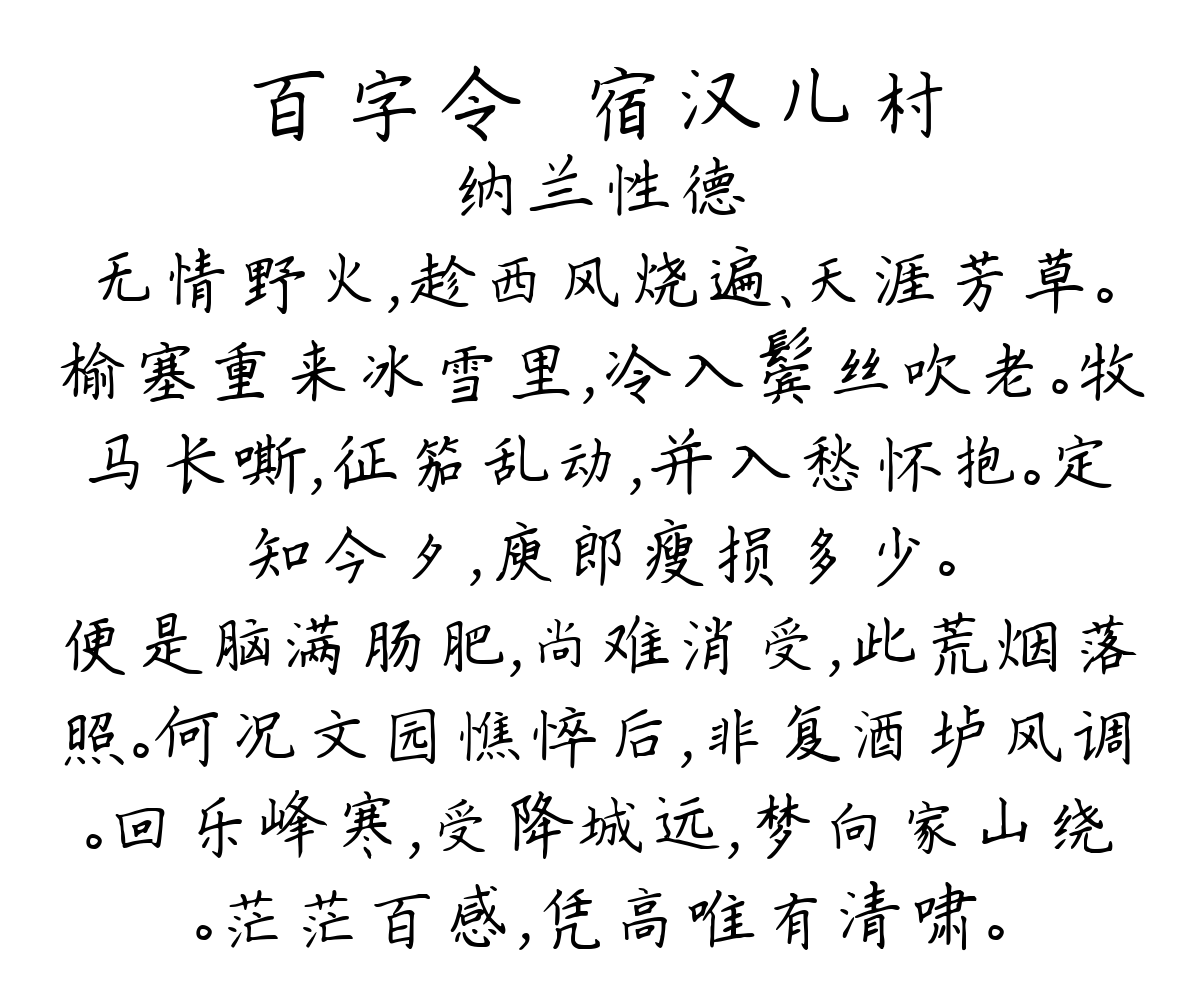 百字令 宿汉儿村
纳兰性德
无情野火,趁西风烧遍、天涯芳草。
榆塞重来冰雪里,冷入鬓丝吹老。牧
马长嘶,征笳乱动,并入愁怀抱。定
知今夕,庾郎瘦损多少。
便是脑满肠肥,尚难消受,此荒烟落
照。何况文园憔悴后,非复酒垆风调
。回乐峰寒,受降城远,梦向家山绕
。茫茫百感,凭高唯有清啸。